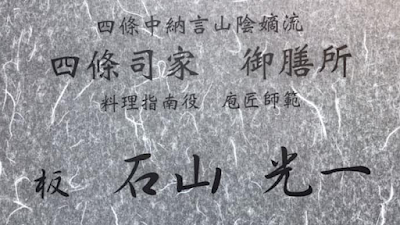 四條中納言山陰嫡流
四條司家　御膳所
料理指南役　庖匠師範
板　石山　光一